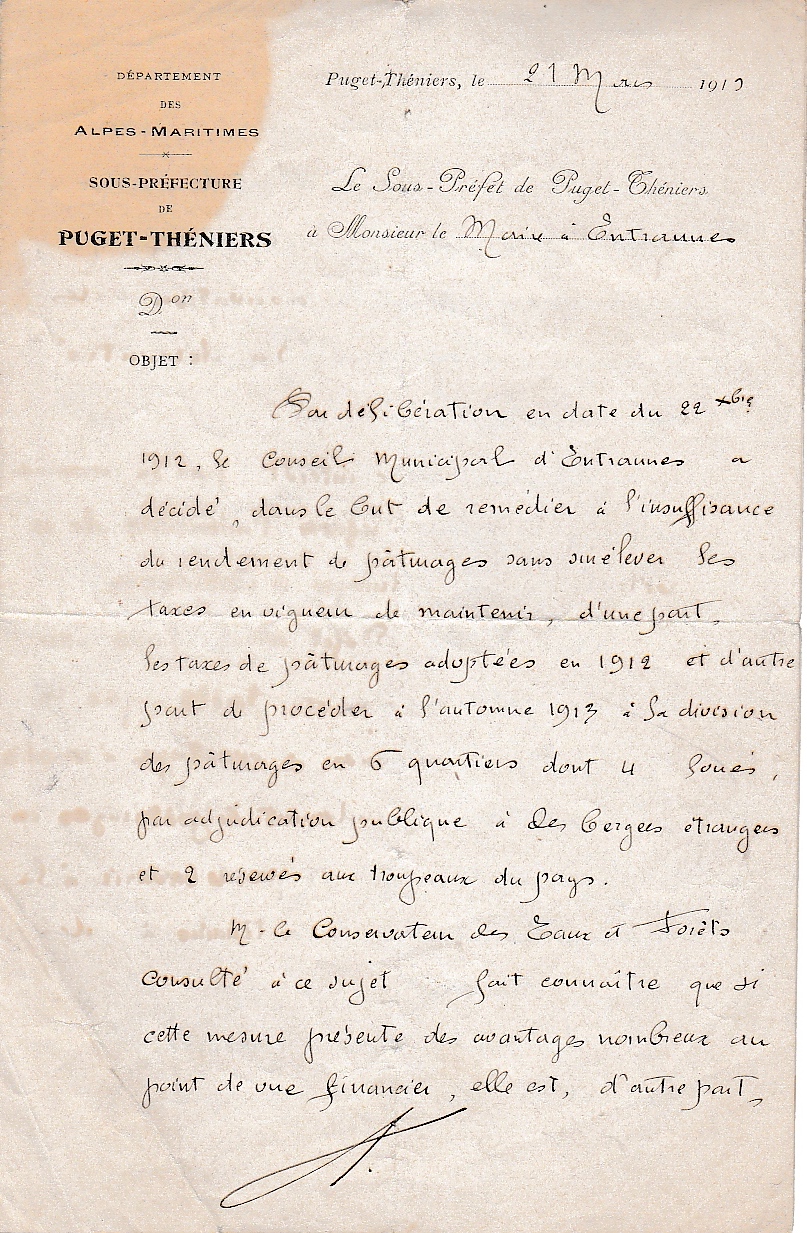 DÉPARTEMENT
DES
ALPES-MARITIMES
SOUS-PRÉFECTURE
DE
PUGET-THÉNIERS
Don
OBJET :
Puget-Théniers, le 21 Mars 1913
Le Sous-Préfet de Puget-Théniers
à Monsieur le Maire à Entraunes
Par délibération en date du 22 Xbre
1912, le Conseil Municipal d'Entraunes a
décidé, dans le but de remédier à l'insuffisance
du rendement de pâturages sans surélever les
taxes en vigueur de maintenir, d'une part,
les taxes de pâturages adoptées en 1912 et d'autre
part de procéder à l'automne 1913 à la division
des pâturages en 6 quartiers dont 4 loués,
par adjudication publique à des bergers étrangers
et 2 réservés aux troupeaux du pays.
M. le Conservateur des Eaux et Forêts
consulté à ce sujet fait connaître que si
cette mesure présente des avantages nombreux au
point de vue financier, elle est, d'autre part,